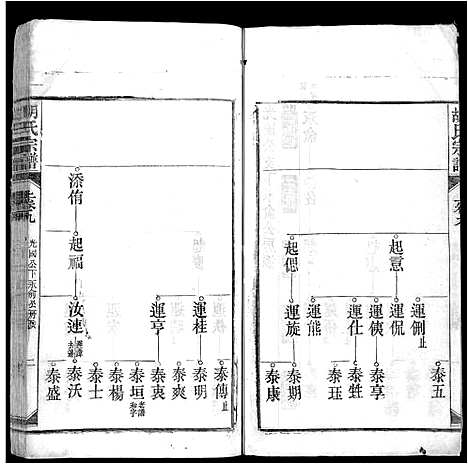 胡氏宗譜
卷九
起慐
起偲
運側止
運侃
運俠
運仕
運熊
運旋
泰五
泰享
泰甡
泰珏
泰期
泰康
胡氏宗譜
卷九
光國公下永俞公房派
二
添侑
起福
運桂
運亨
汝速
泰傳止
泰明
泰爽
泰垣
泰衷
泰楊
泰士
泰沃
泰盛